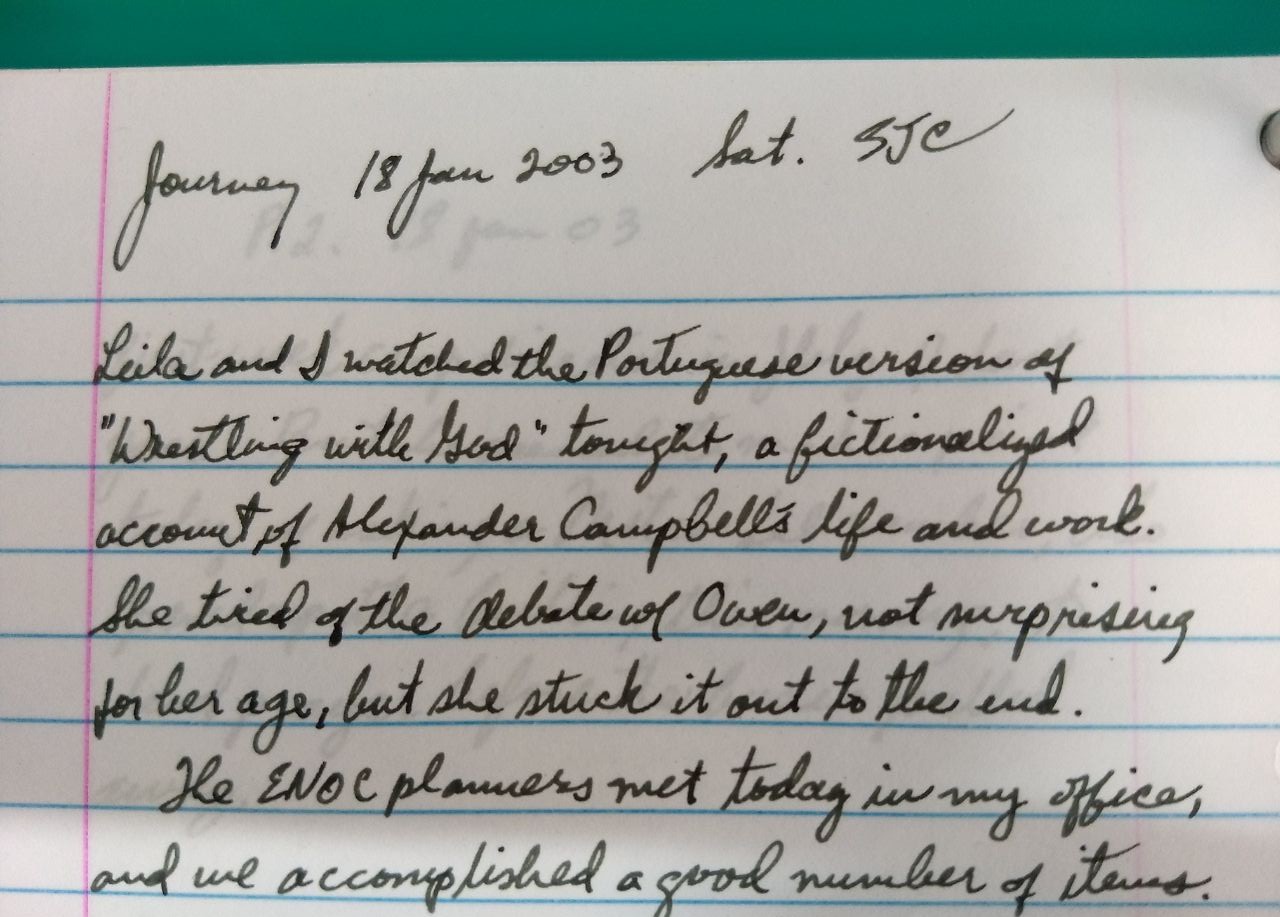 Journey 18 Jan 2003 Sat. SJC
P.2. 18 Jan 03
Leila and I watched the Portuguese version of
"Wrestling with God" tonight, a fictionalized
account of Alexander Campbell's life and work.
She tired of the debate w/ Owen, not surprising
for her age, but she stuck it out to the end.
The ENOC planners met today in my office,
and we accomplished a good number of items.